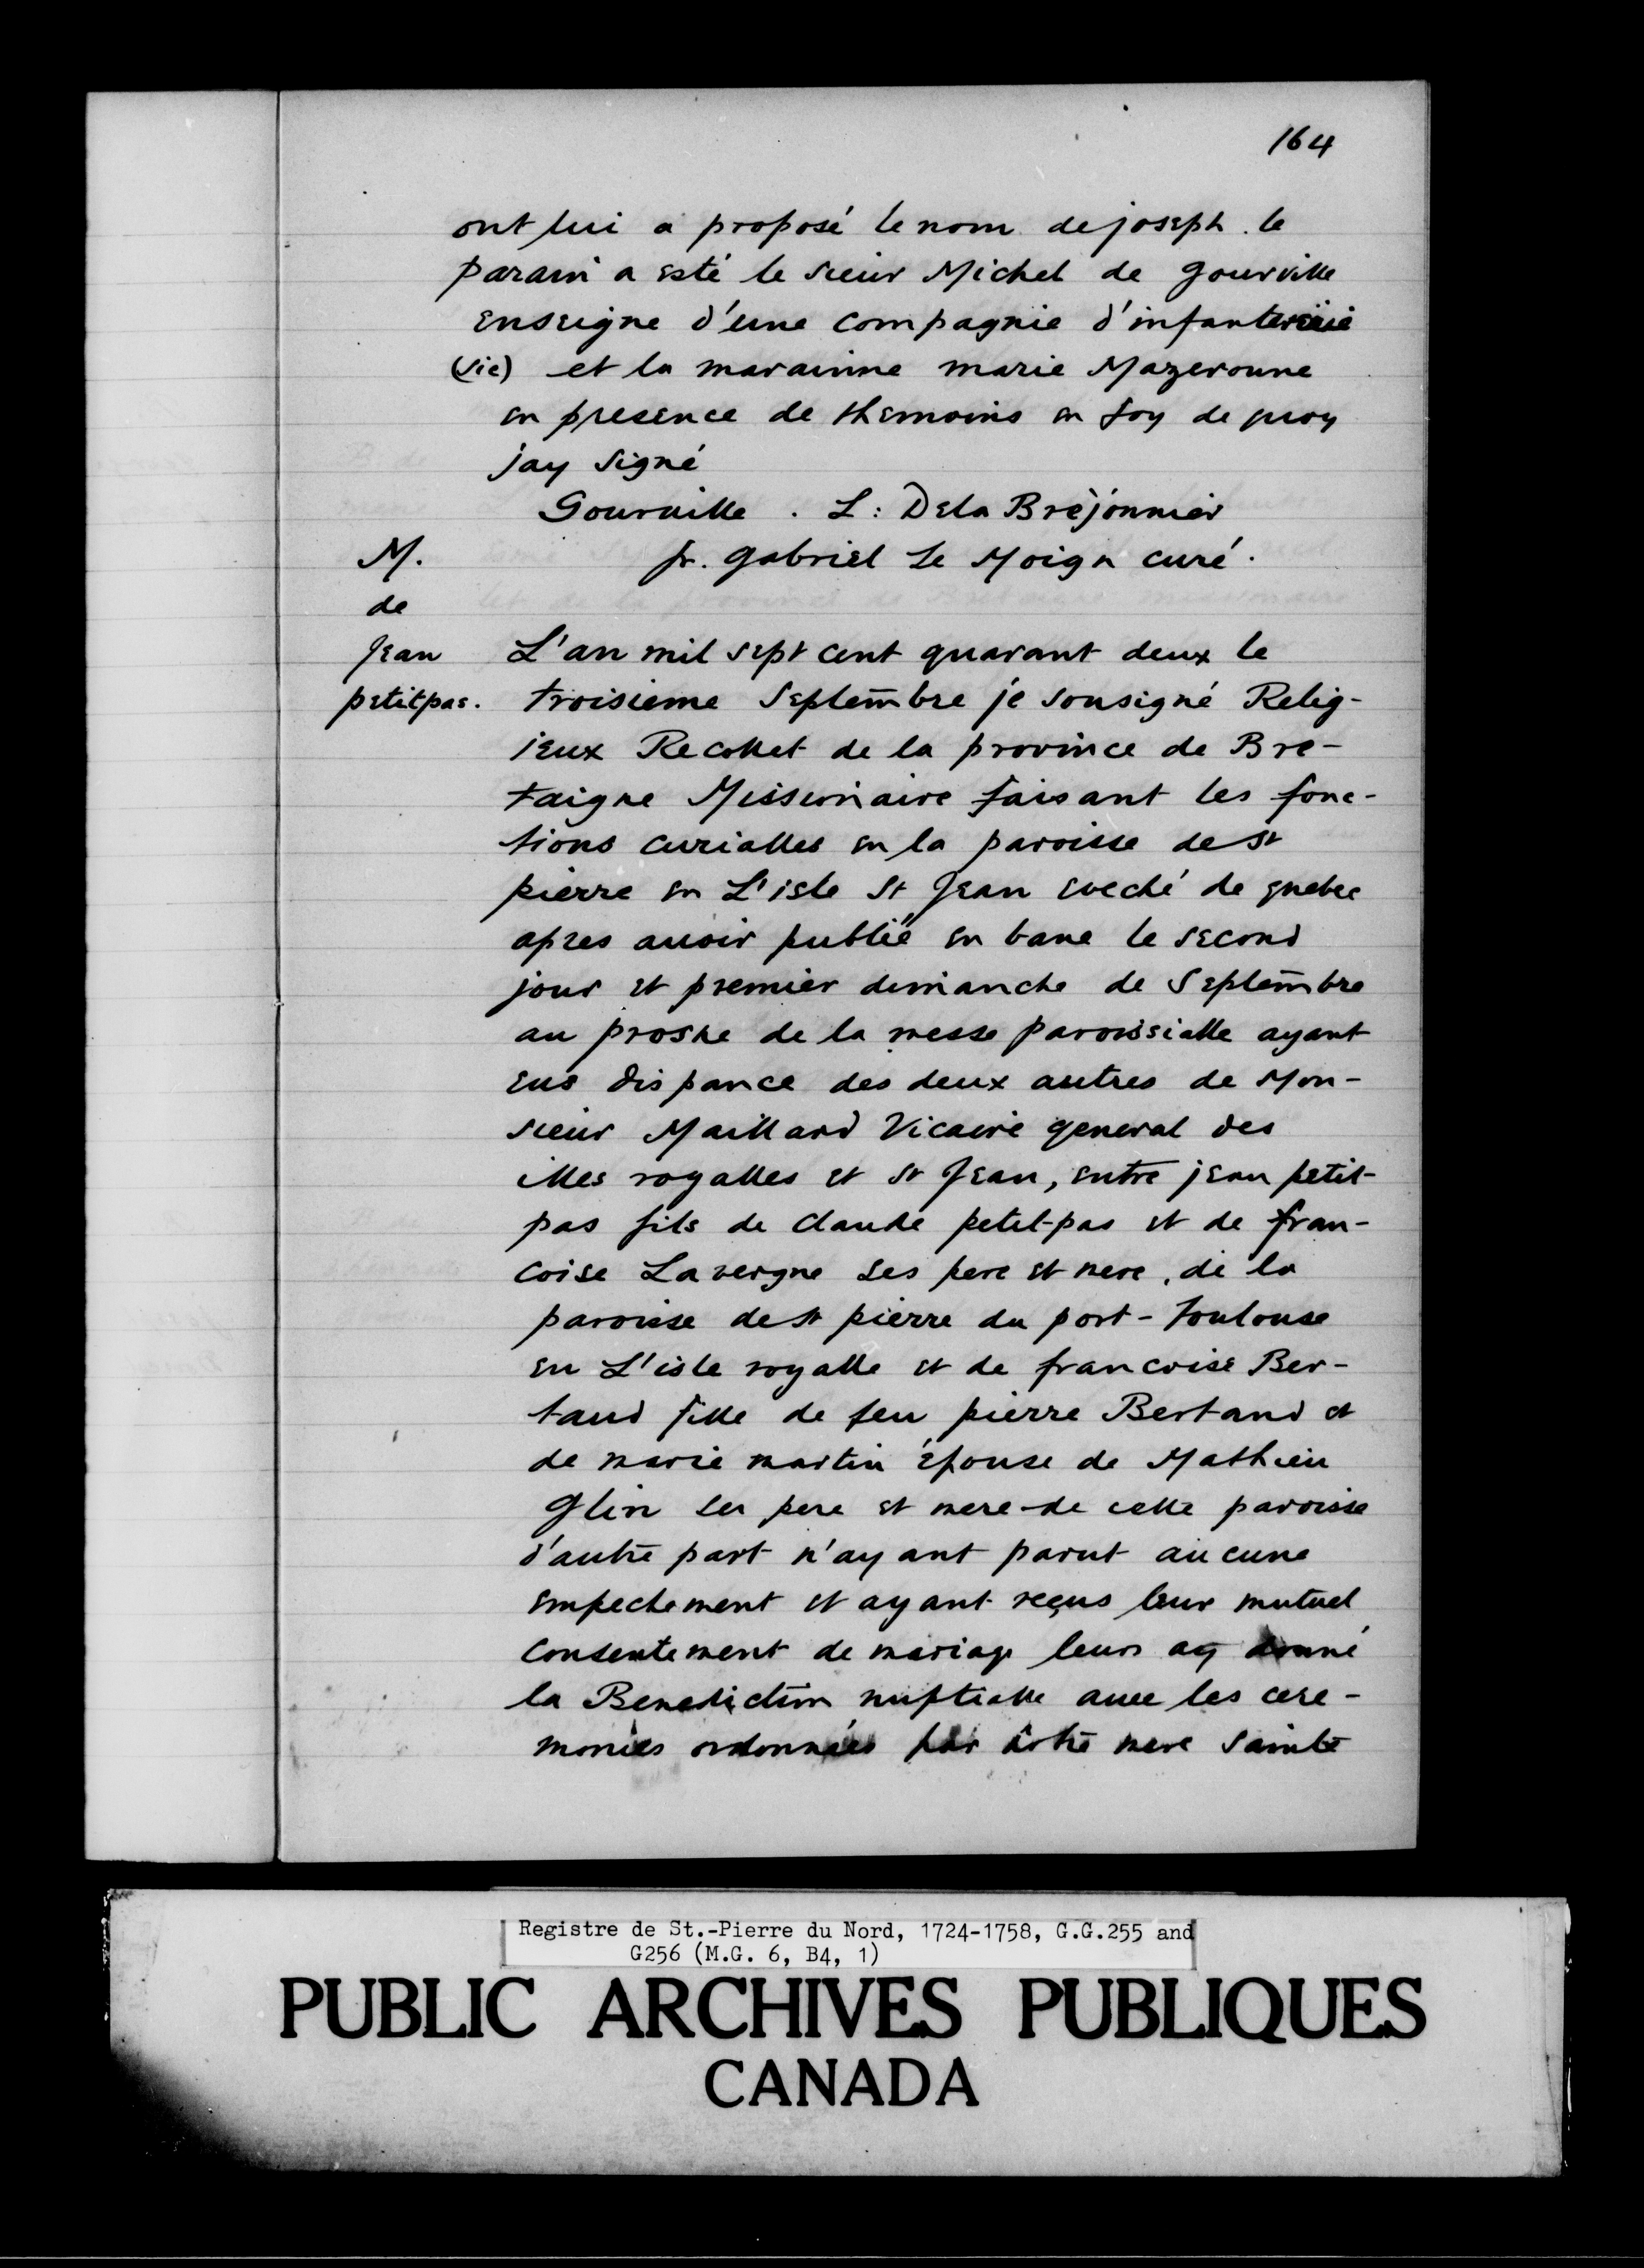 164
ont lui a proposé le nom de joseph. le
parain a esté le sieur Michel de gourville
enseigne d'une compagnie d'infantereiie
(sic) et la marainne marie Mazeroune
en presence de themoins en foy de quoy
jay signé
Gourville . L: Dela Bréjonnier
fr. gabriel Le Moign curé.
M.
de
Jean
petitpas.
L'an mil sept cent quarant deux le
troisieme Septembre je sousigné Relig-
ieux Recollet de la province de Bre-
taigne Missionaire faisant les fonc-
tions curialles en la paroisse de St
pierre en L'isle St Jean eveché de quebec
apres avoir publié en banc le second
jour et premier dimanche de Septembre
au prosne de la messe paroissialle ayant
eus dispance des deux autres de Mon-
sieur Maillard Vicaire general des
illes royalles et St Jean, entre jean petit-
pas fils de Claude petit-pas et de fran-
coise Lavergne ses pere et mere, de la
paroisse de St pierre du port-Toulouse
en L'isle royalle et de francoise Ber-
taud fille de feu pierre Bertand et
de marie martin épouse de Mathieu
Glin ses pere et mere-de cette paroisse
d'autre part n'ayant parut aucune
empechement et ayant reçus leur mutuel
consentement de mariage leurs ay donné
la Benediction nuptialle avec les cere-
monies ordonnées par nôtre mere Sainte
Registre de St.-Pierre du Nord, 1724-1758, G.G.255 and
G256 (M.G. 6, B4, 1)
PUBLIC ARCHIVES PUBLIQUES
CANADA